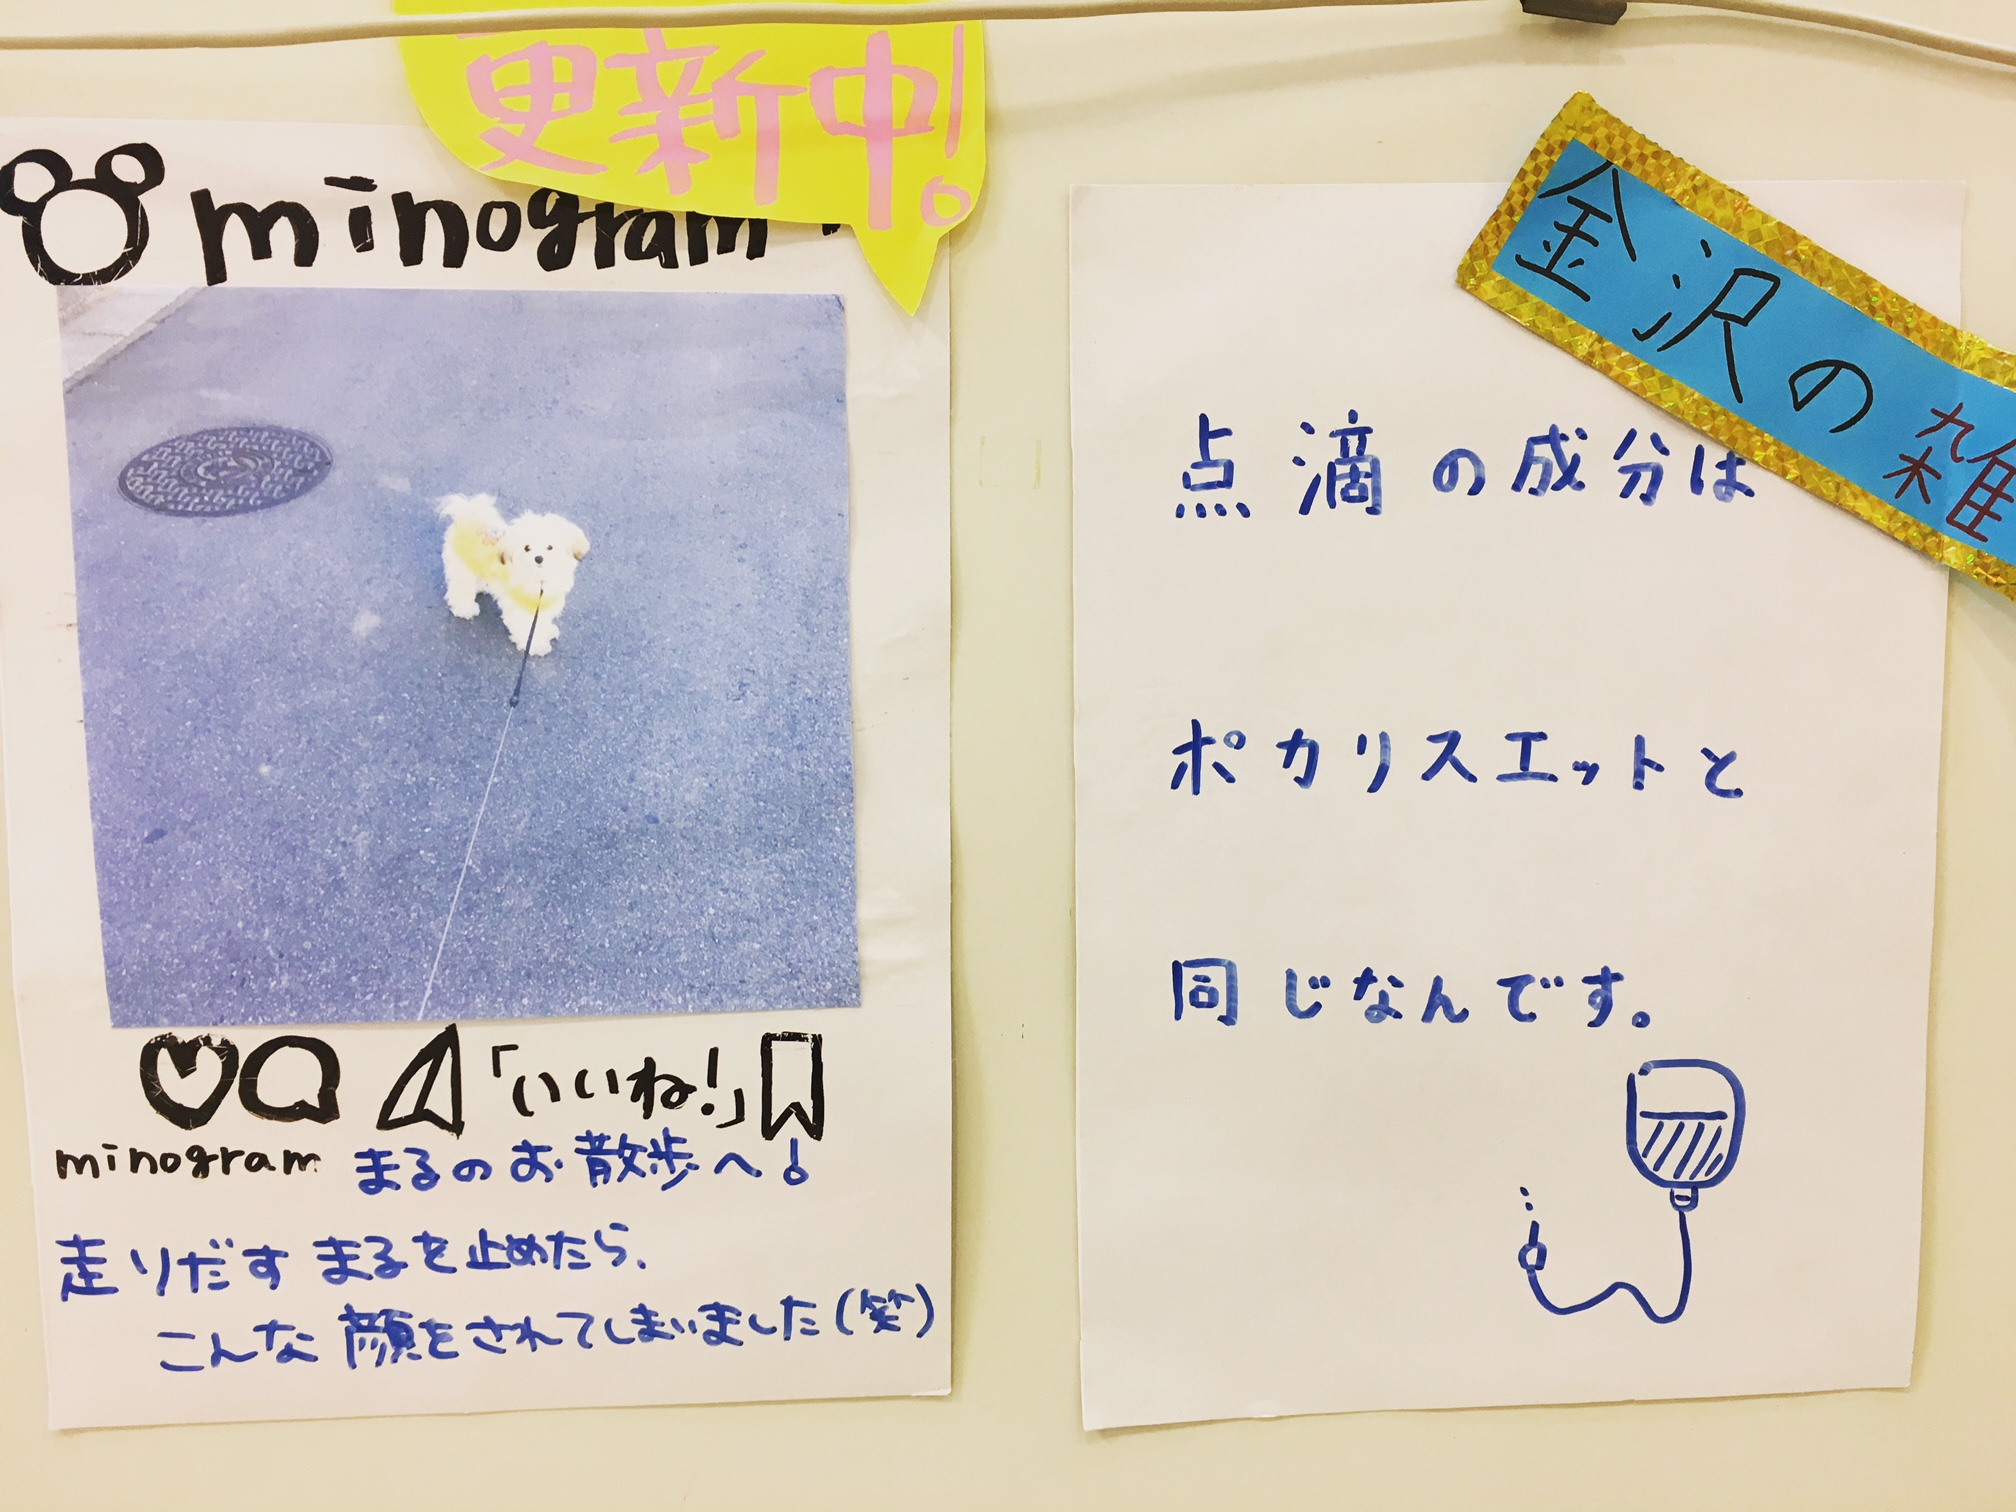 更新中!
minogram
「いいね!」
minogram まるのお散歩へ!
走りだすまるを止めたら、
こんな顔をされてしまいました(笑)
金沢の雑
点滴の成分は
ポカリスエットと
同じなんです。